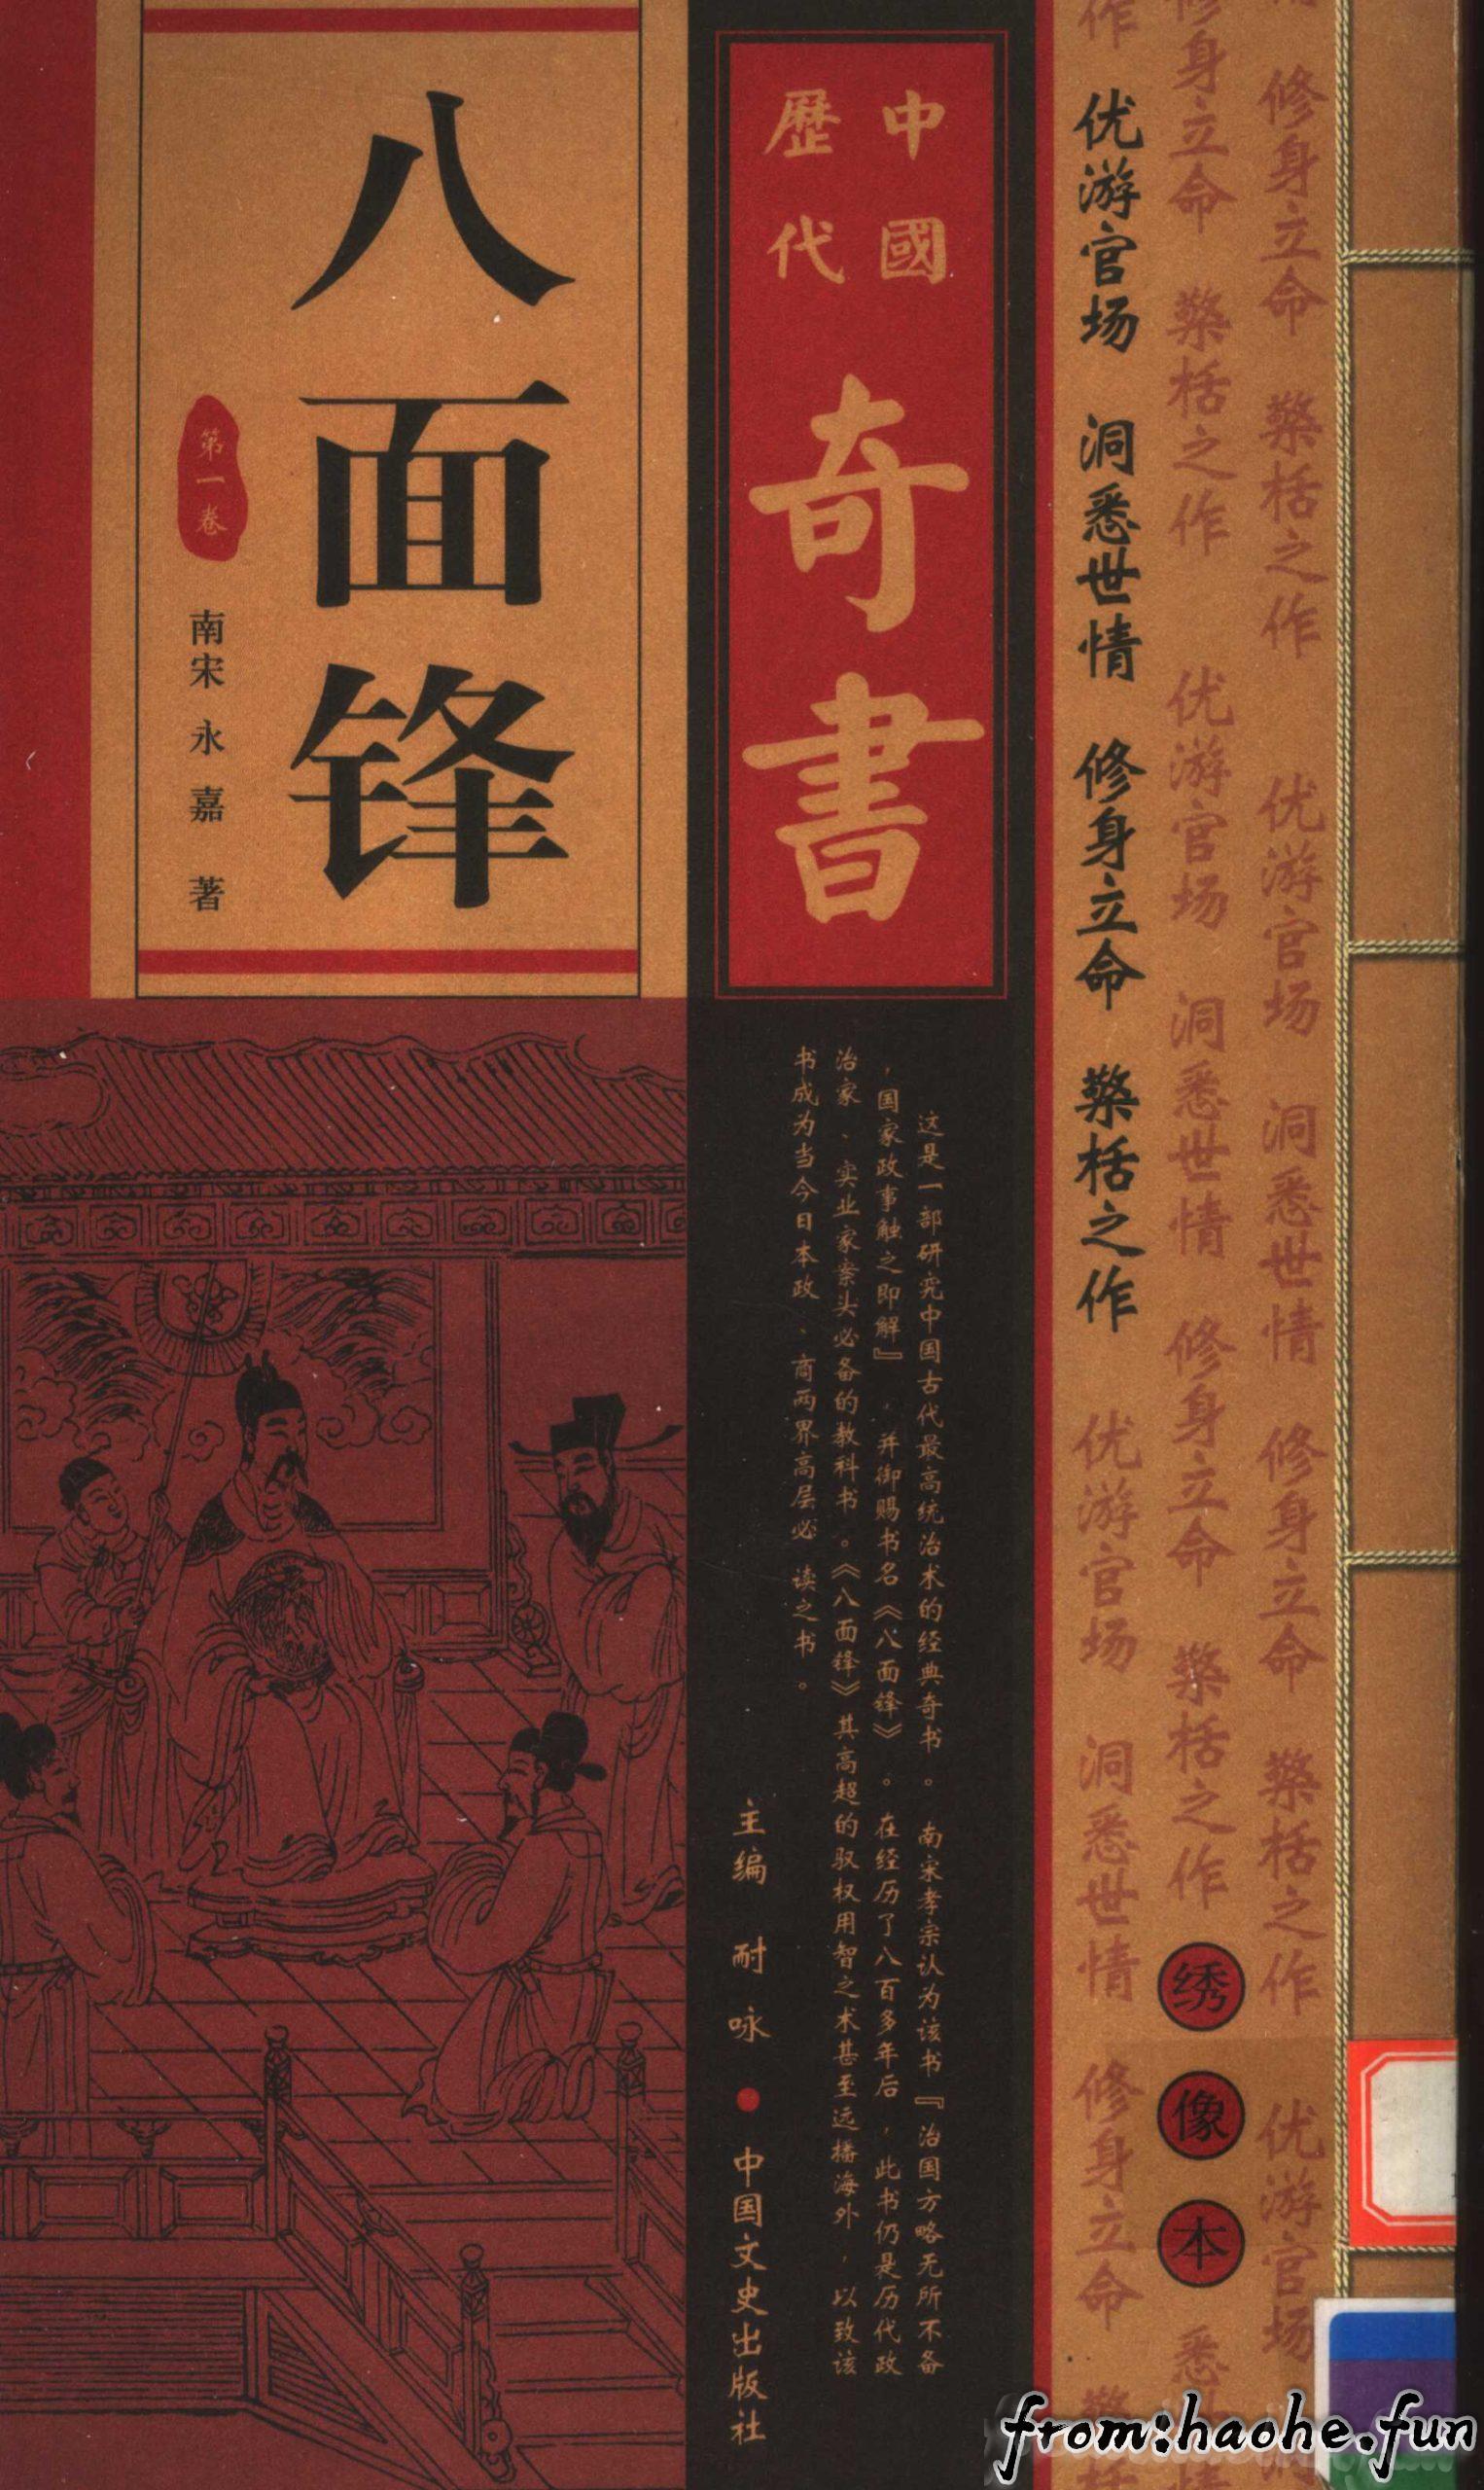 修身立命 檠栝之作 优游官场 洞悉世情 修身立命 檠栝之作 优游官场
修身立命 檠栝之作 优游官场 洞悉世情 修身立命 檠栝之作
绣像本
悉
作 优游官场 洞悉世情 修身立命 檠栝之作 优游官场 洞悉世情 修身立命
中國
歷代
奇書
这是一部研究中国古代最高统治术的经典奇书。南宋孝宗认为该书『治国方略无所不备
，国家政事触之即解』，并御赐书名《八面锋》。在经历了八百多年后，此书仍是历代政
治家、实业家案头必备的教科书。《八面锋》其高超的驭权用智之术甚至远播海外，以致该
书成为当今日本政、商两界高层必读之书。
主编 耐咏 ● 中国文史出版社
八面锋
第一卷
南宋 永嘉 著
from:haohe.fun